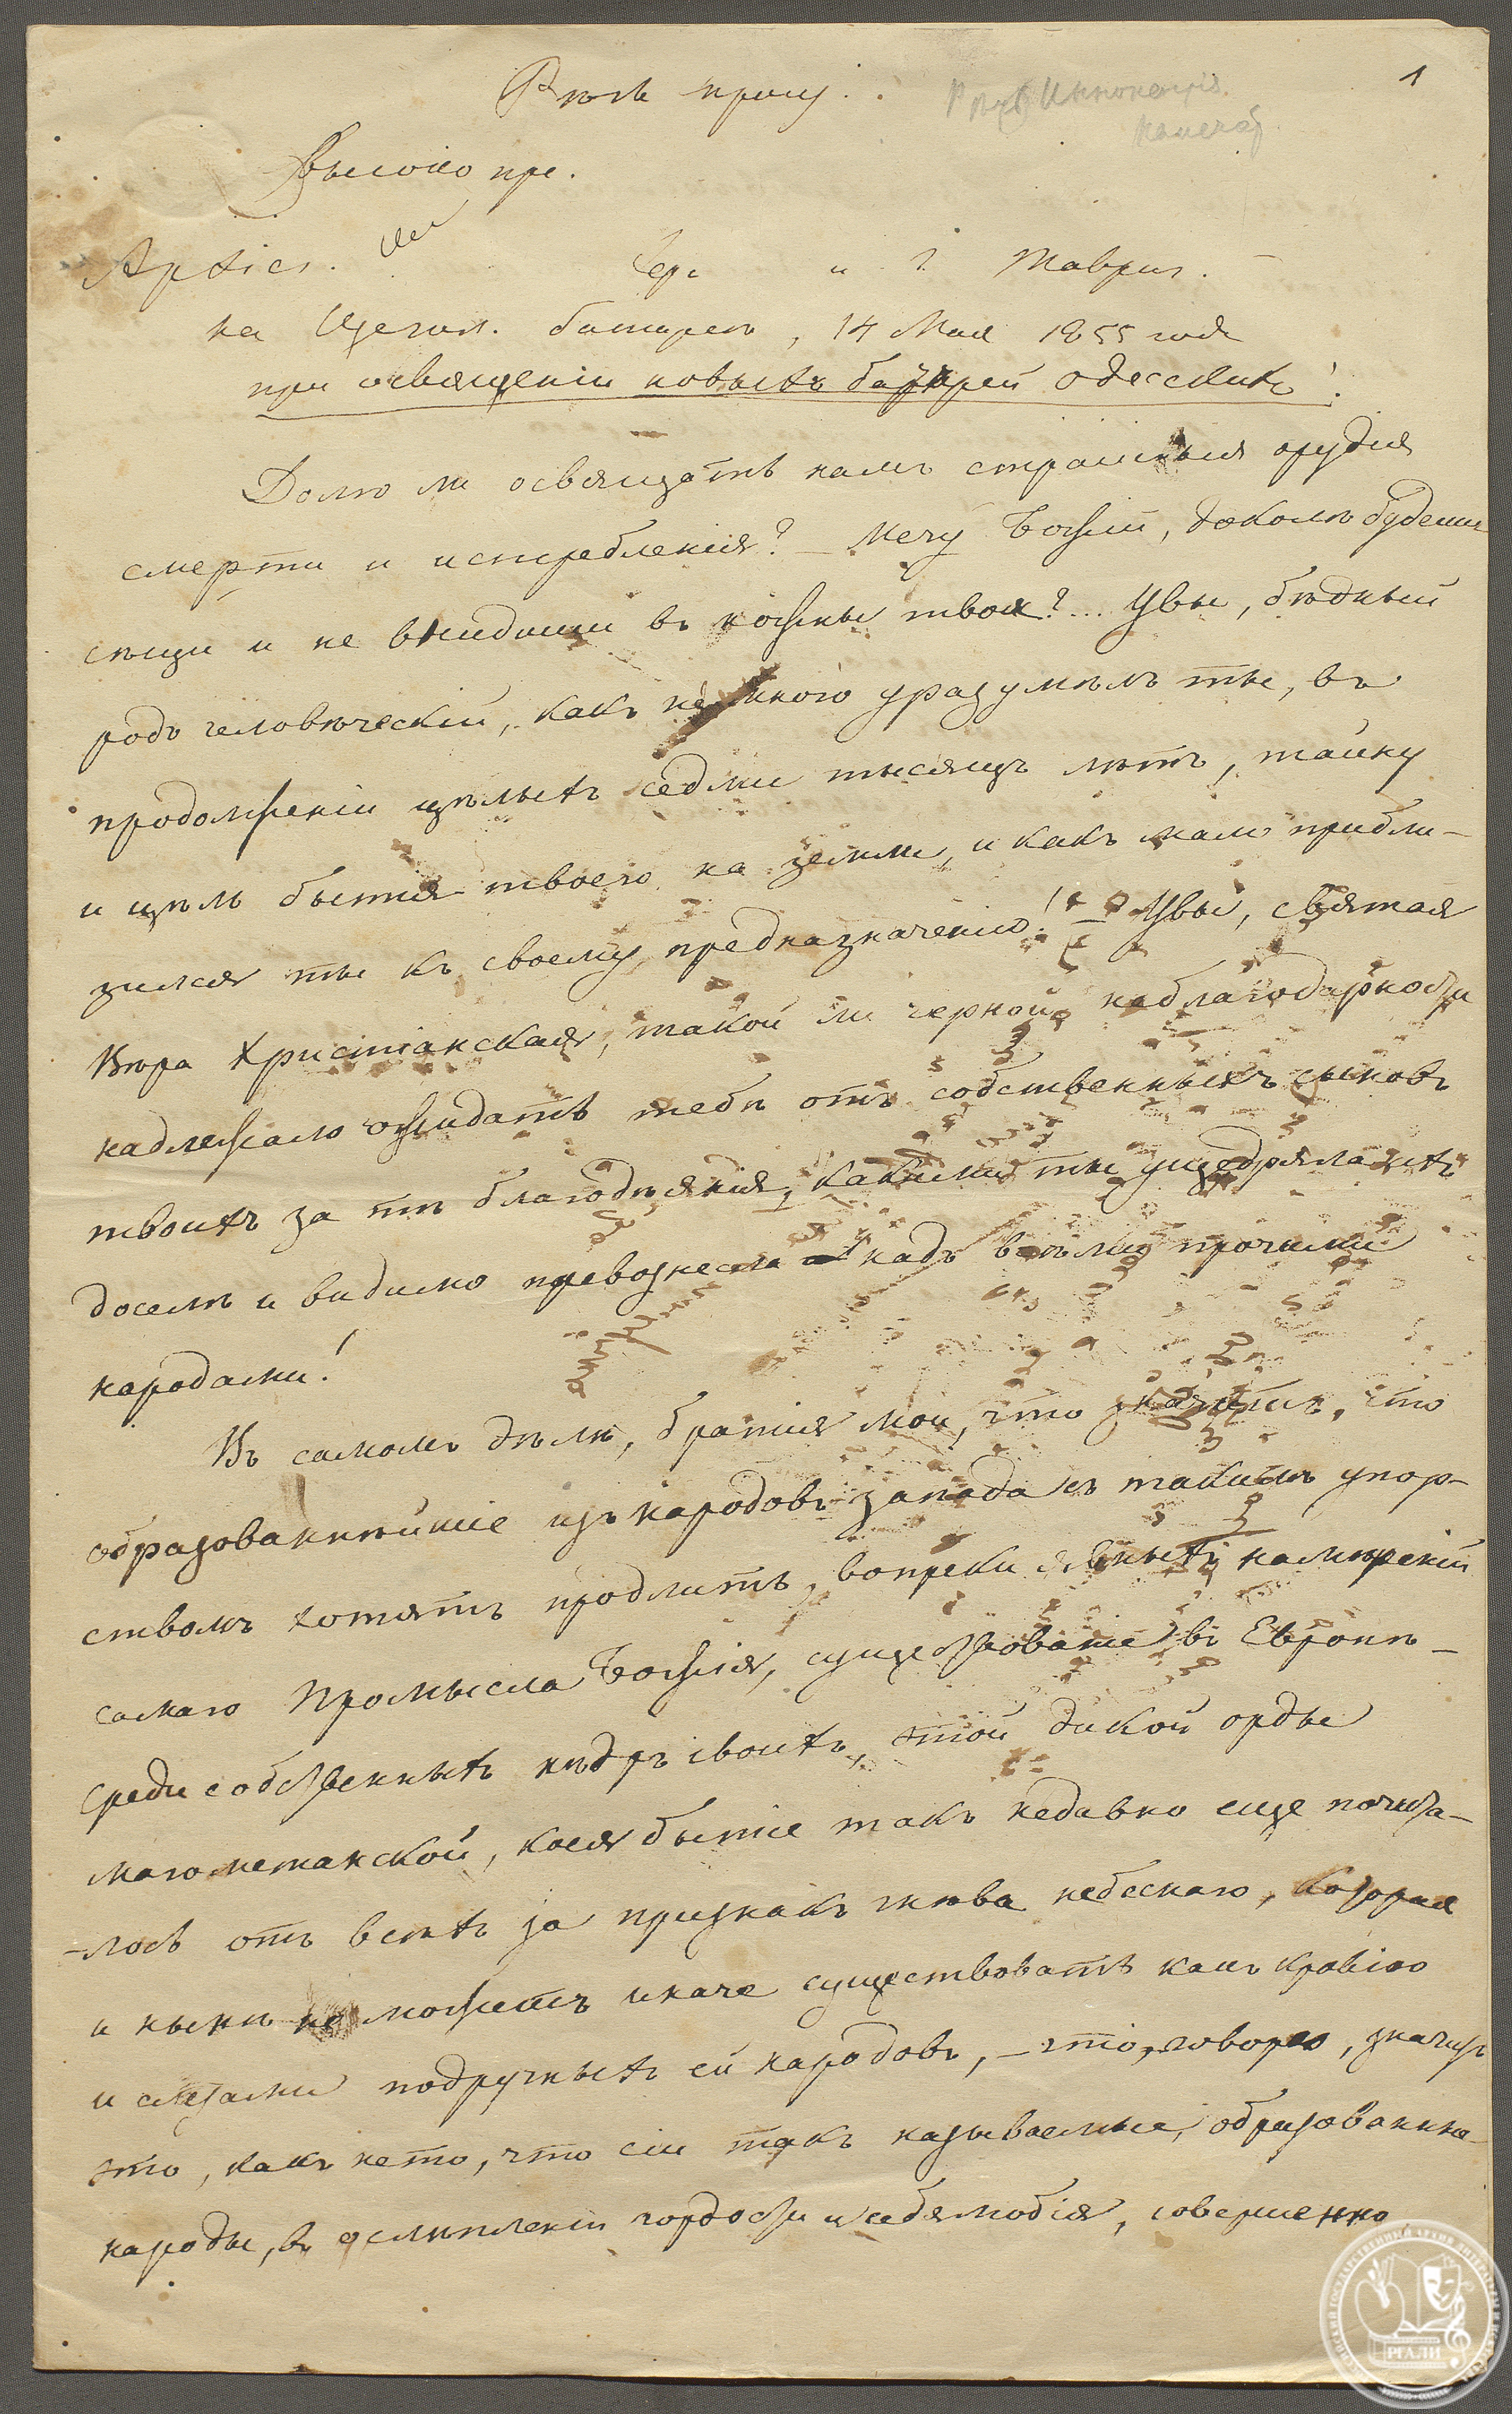 1
Рѣчь
Высоко пре.
Архіеп. Хер. и Т. Таврич.
на Щегол. батареѣ, 14 Мая 1855 года
при освященіи новыхъ батарей одесскихъ!
Долго ли освящать намъ страшныя орудія
смерти и истребленія? – Мечу Божій, доколѣ будеши
сѣщи и не внидеши въ ножны твоя?... Увы, бѣдный
родъ человѣческій, какъ не много уразумѣлъ ты, въ
продолженіи цѣлыхъ седми тысящъ лѣтъ, тайну
и цѣль бытія твоего на земли, и какъ мало прибли-
зился ты къ своему предназначенію! – Увы, святая
Вѣра Христіанская, такой ли черной неблагодарности
надлежало ожидать тебѣ отъ собственныхъ сыновъ
твоихъ за тѣ благодѣянія, какими ты ущедряла ихъ
доселѣ и видимо превознесла надъ всѣми прочими
народами!
Въ самомъ дѣлѣ, братія мои, что значитъ, что
образованнѣйшіе изъ народовъ запада съ такимъ упор-
ствомъ хотятъ продлить, вопреки явныхъ намѣреній
самаго Промысла Божія, существованіе въ Европѣ –
среди собственныхъ нѣдръ своихъ, этой дикой орды
магометанской, коея бытіе такъ недавно еще почита-
-лось отъ всѣхъ за признакъ гнѣва небеснаго, которая
и нынѣ не можетъ иначе существовать какъ кровію
и слезами подручныхъ ей народовъ, – что, говорю, значитъ
это, какъ не то, что сіи такъ называемые, образованные
народы, въ ослѣпленіи гордости и себялюбія, совершенно
РГАЛИ